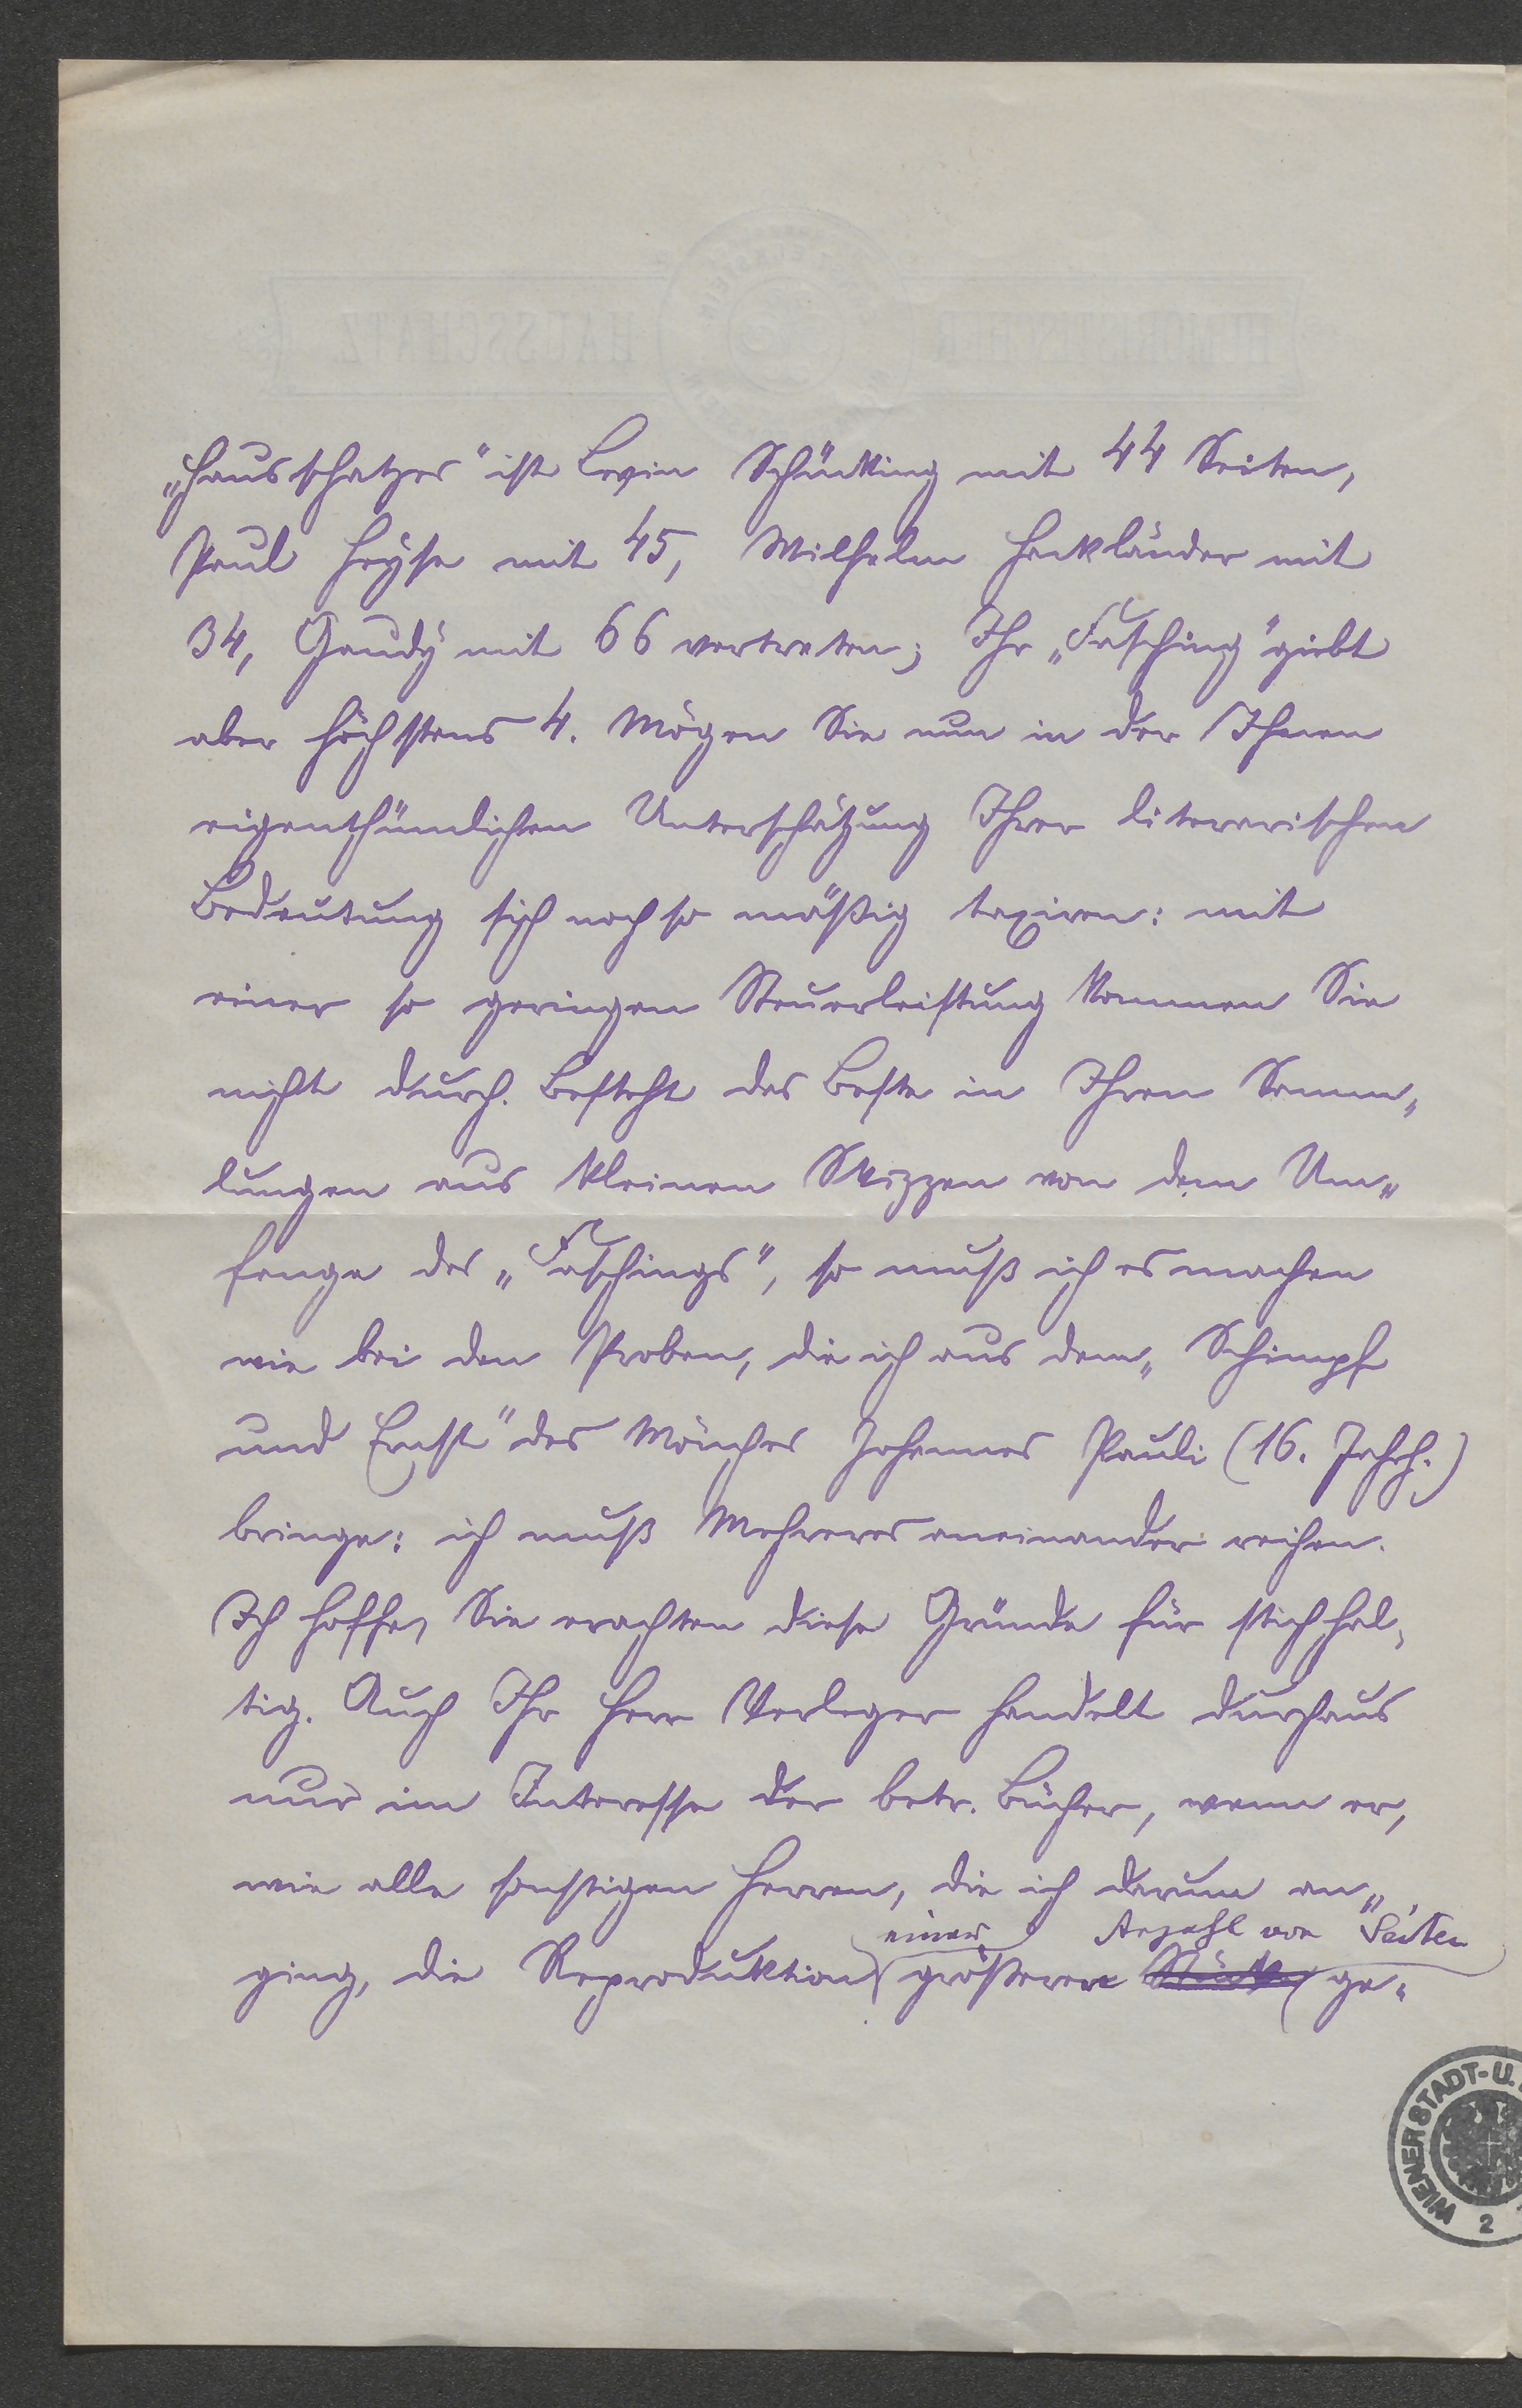 „Hausschatzes" ist Levin Schücking mit 44 Seiten,
Paul Heyse mit 45, Wilhelm Hackländer mit
34, Gaudy mit 66 vertreten; Ihr „Fasching" giebt
aber höchstens 4. Mögen Sie nun in der Ihnen
eigenthümlichen Unterschätzung Ihrer literarischen
Bedeutung sich noch so mäßig taxiren: mit
einer so geringen Steuerleistung kommen Sie
nicht durch. Besteht das Beste in Ihren Samm„
lungen aus kleinen Skizzen von dem Um„
fange des „Faschings", so muß ich es machen
wie bei den Proben, die ich aus dem „Schimpf
und Ernst" des Mönches Johannes Pauli (16. Jahrh.)
bringe: ich muß Mehreres aneinander reihen.
Ich hoffe, Sie erachten diese Gründe für stichhal„
tig. Auch Ihr Herr Verleger handelt durchaus
nur im Interesse der betr. Bücher, wenn er,
wie alle sonstigen Herren, die ich darum an„
einer Anzahl von Seiten
ging, die Reproduktion größerer Stücke ge„
WIENER STADT-U.
2
HUMORISTISCHER HAUSSCHATZ